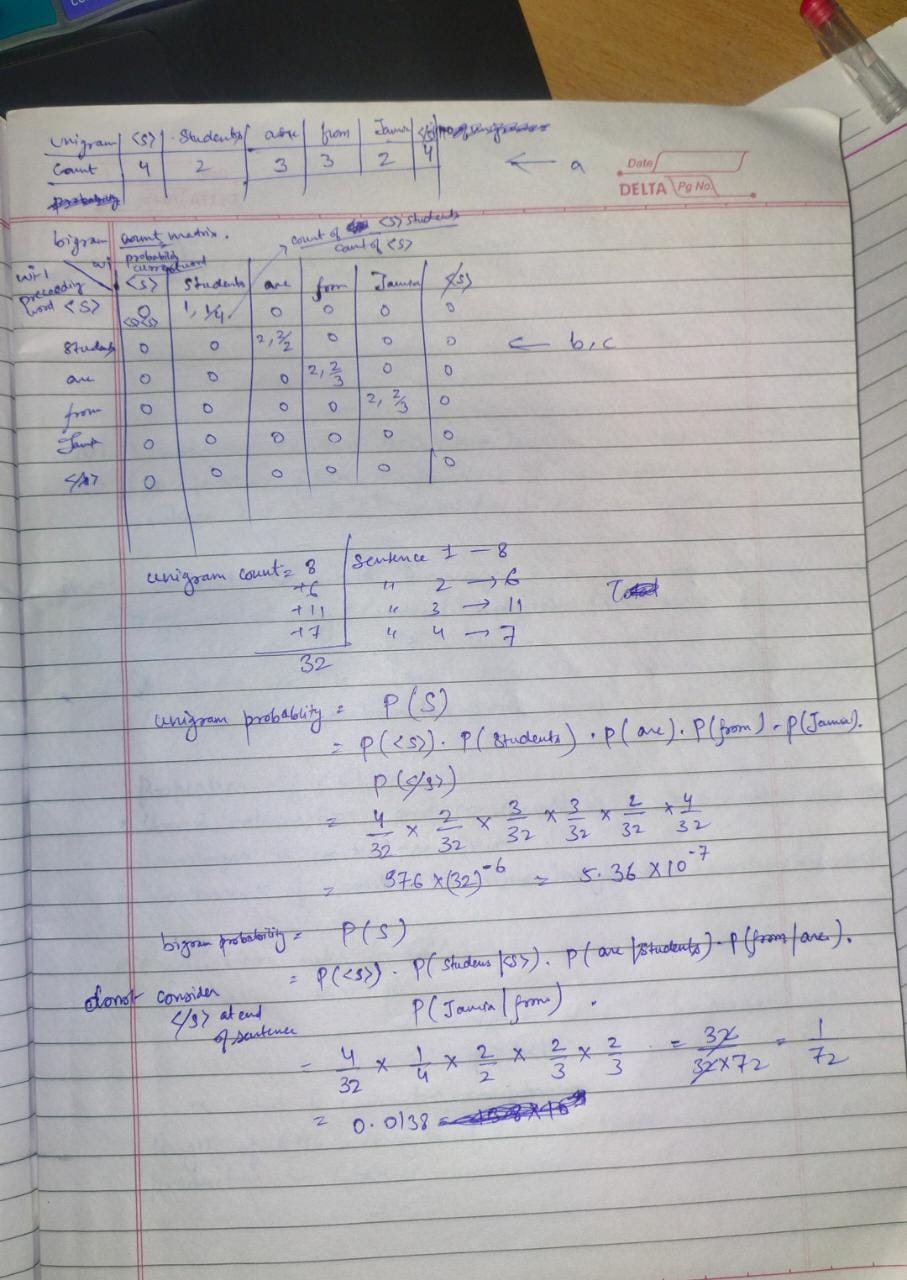 Unigram | <S> | Students | are | from | Jamia | </S>
Count | 4 | 2 | 3 | 3 | 2 | 4
← a
Date
DELTA Pg No.
bigram count matrix.
probability
count of <S> students
count of <S>
wi current word
wi-1 preceeding word
<S> | Students | are | from | Jamia | </S>
<S> | 0 <S><S> | 1, 1/4 | 0 | 0 | 0 | 0
Students | 0 | 0 | 2, 2/2 | 0 | 0 | 0
← b, c
are | 0 | 0 | 0 | 2, 2/3 | 0 | 0
from | 0 | 0 | 0 | 0 | 2, 2/3 | 0
Jamia | 0 | 0 | 0 | 0 | 0 | 0
</S> | 0 | 0 | 0 | 0 | 0 | 0
unigram count = 8 | Sentence 1 — 8
+6 | " 2 → 6
+11 | " 3 → 11
+7 | " 4 → 7
32
unigram probablity = P(S)
= P(<S>) . P(Students) . P(are) . P(from) . P(Jamia).
P(</S>)
= 4/32 × 2/32 × 3/32 × 3/32 × 2/32 × 4/32
= 576 × (32)^-6 = 5.36 × 10^-7
bigram probability = P(S)
= P(<S>) . P(Studens |<S>). P(are |Students) . P(from | are).
P(Jamia | from) .
donot consider
</S> at end
of sentence
= 4/32 × 1/4 × 2/2 × 2/3 × 2/3 = 32/32×72 = 1/72
= 0.0138